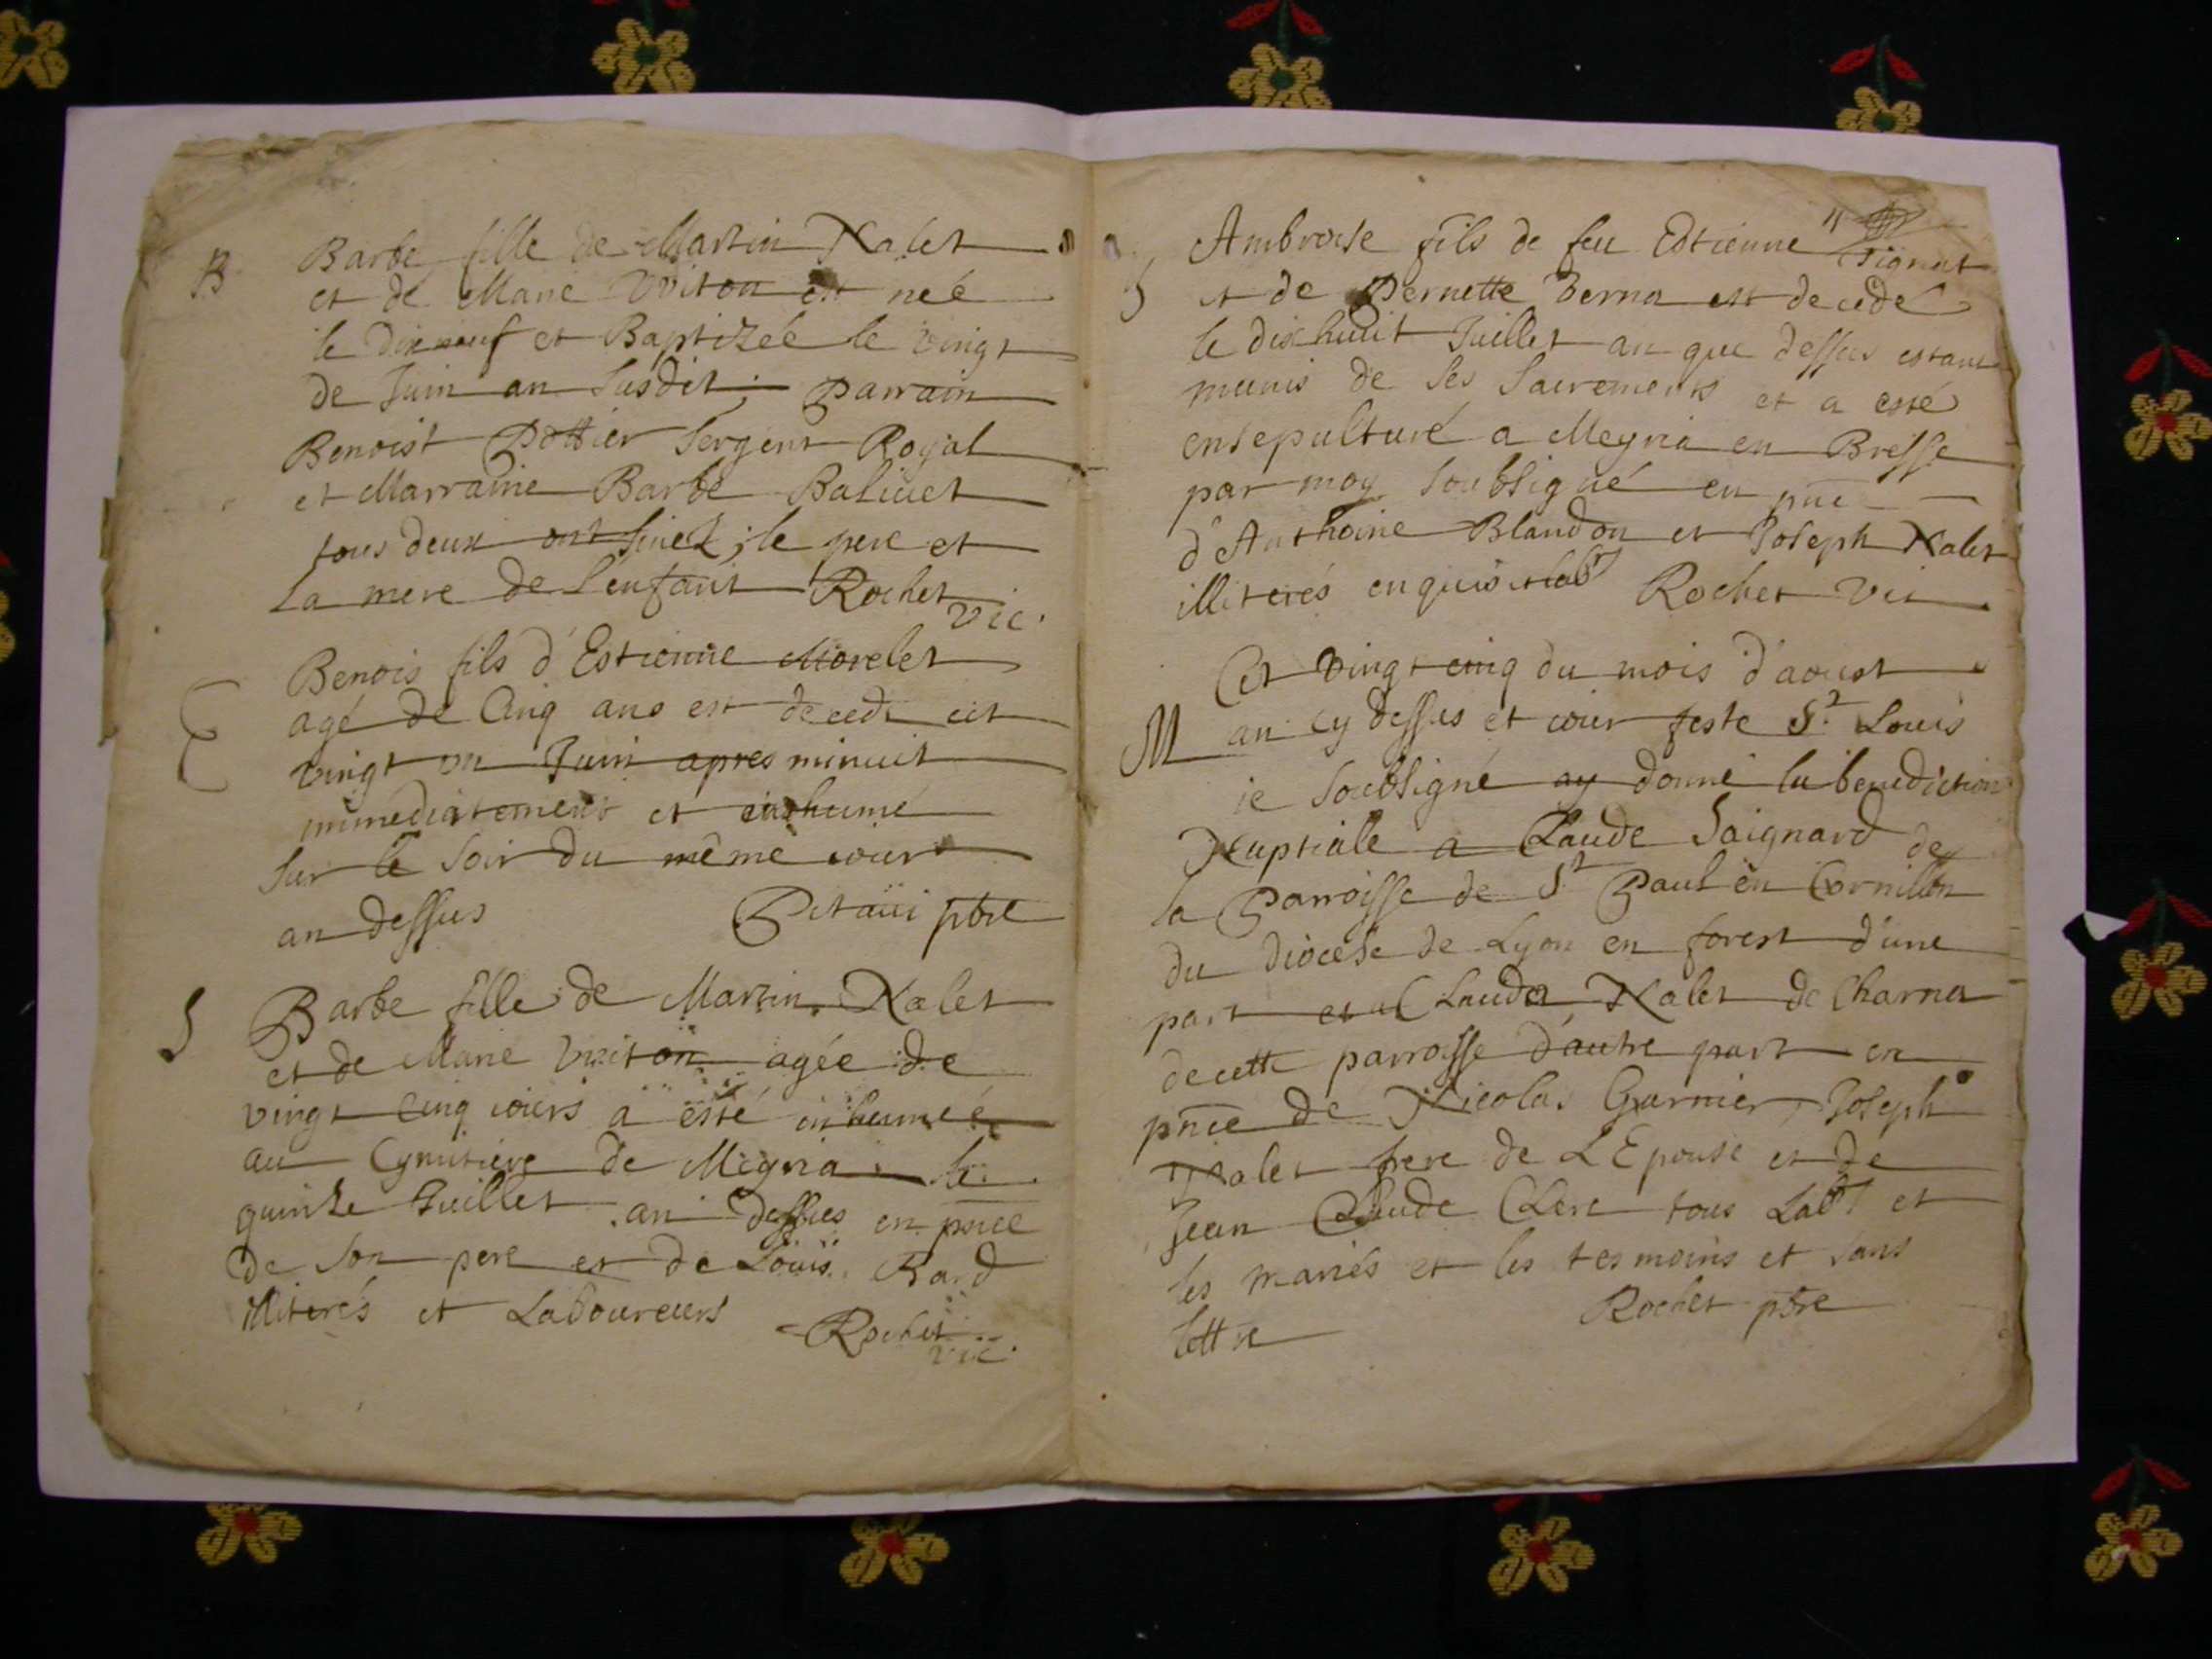 B
Barbe fille de Martin Nalet
et de Marie Vuiton est née
le dixneuf et Baptizeé le vingt
de Juin an susdit; Parrain
Benoist Pottier Sergent Royal
et Marraine Barbe Balivet
tous deux ont le pere et
la mere de l'enfant Rochet
vic.
Benois fils d'Estienne Morelet
agé de Cinq ans est decedé cet
vingt un Juin apres minuit
immediatement et inshumé
sur le soir du même iour
an dessus Petaui pbre
S
Barbe fille de Martin Nalet
et de Marie Vuiton agée de
vingt Cinq iours a esté inhumeé
au Cymitiere de Meyria le
quinze Juillet an dessus en pnce
de son pere et de Louis Rard
illiterés et Laboureurs Rochet
vic.
11
S
Ambroise fils de feu Edtienne Tignat
et de Pernette Berna est decedé
le dixhuit Juillet an que dessus estant
munis de ses Sacrements et a esté
ensepulturé a Meyria en Bresse
par moy soubsigné en pnce
d'Anthoine Blandon et Joseph Nalet
illiterés enquis et labr Rochet vic
Cet vingt cinq du mois d'aoust
M
an cy dessus et iour feste St Louis
ie soubsigné ay donné la benediction
Nuptiale a Claude Saignard de
la Parroisse de St Paul en Cornillon
du diocese de Lyon en forest d'une
part et a Clauda Nalet de Charna
de cette parroisse d'autre part en
pnce de Nicolas Garnier, Joseph
Nalet frere de L'Epouse et de
Jean Claude Clere tous Labr et
les mariés et les tesmoins et sans
lettre Rochet pbre